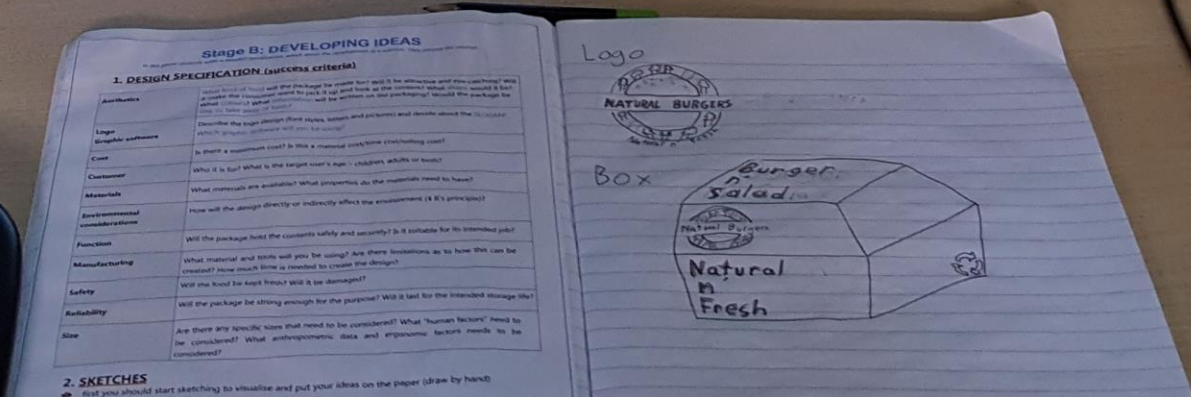 Stage B: DEVELOPING IDEAS
1. DESIGN SPECIFICATION (success criteria)
Aesthetics
What kind of food will the package be made for? Will it be attractive and eye-catching? Will
Logo
Graphic software
Describe the logo design (font styles, letters and pictures) and decide about the
Which graphic software will you be using?
Cost
Is there a maximum cost? Is this a material cost/time cost/selling cost?
Customer
Who it is for? What is the target user's age - children, adults or both?
Materials
What materials are available? What properties do the materials need to have?
Environmental
considerations
How will the design directly or indirectly affect the environment (4 R's principle)?
Function
Will the package hold the contents safely and securely? Is it suitable for its intended job?
Manufacturing
What material and tools will you be using? Are there limitations as to how this can be
created? How much time is needed to create the design?
Safety
Will the food be kept fresh? Will it be damaged?
Reliability
Will the package be strong enough for the purpose? Will it last for the intended storage life?
Size
Are there any specific sizes that need to be considered? What "human factors" need to
be considered? What anthropometric data and ergonomic factors needs to be
considered?
2. SKETCHES
first you should start sketching to visualise and put your ideas on the paper (draw by hand)
Logo
NATURAL BURGERS
Box
Burger
n
Salad
Natural Burgers
Natural
n
Fresh